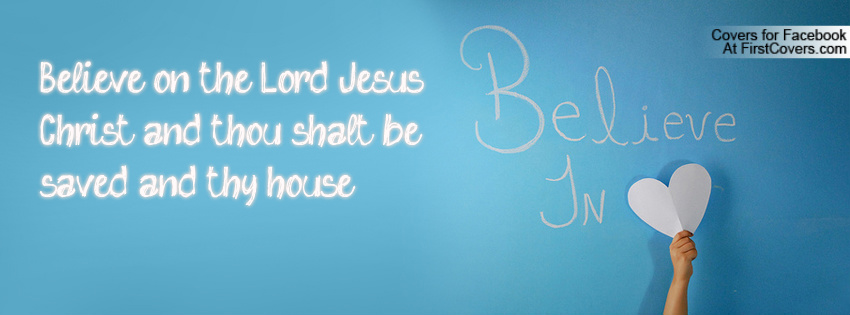 Believe on the Lord Jesus
Christ and thou shalt be
saved and thy house
Believe
In
Covers for Facebook
At FirstCovers.com